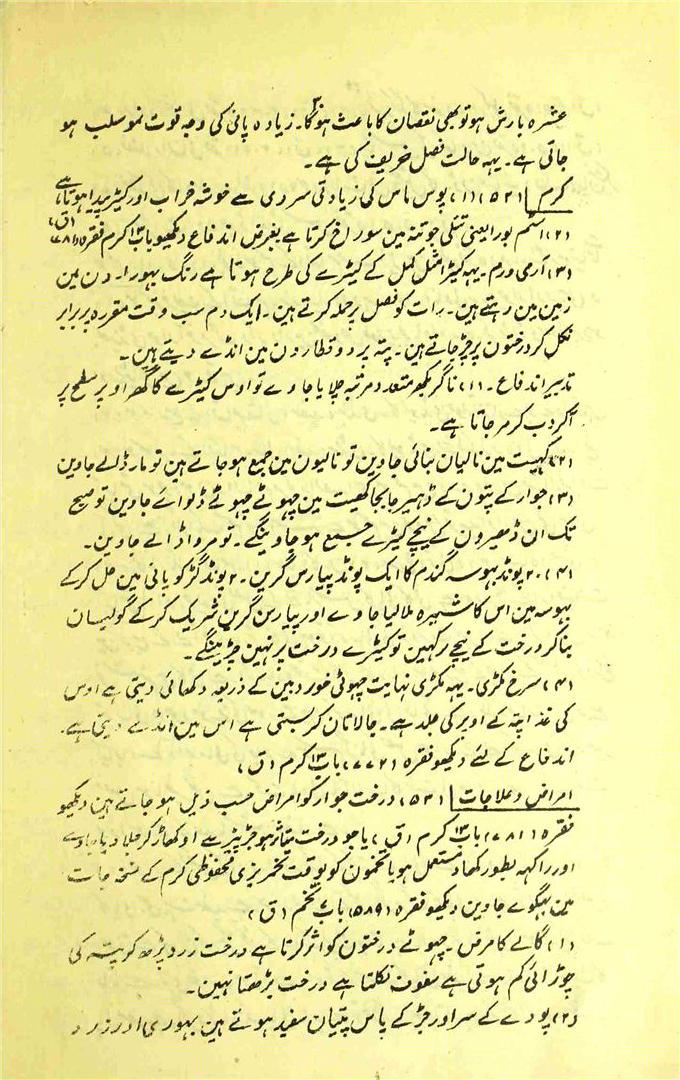 عشرہ بارش ہو تو بھی نقصان کا باعث ہوگا۔ زیادہ پانی کی وجہ قوت نمو سلب ہو
جاتی ہے۔ یہہ حالت فصل خریف کی ہے۔
کرم (۵۲۱) (۱) پوس ماس کی زیادتی سردی سے خوشہ خراب اور کیڑہ پیدا ہوتا ہے
(۲) اسٹم بورا یعنی تتلی جو تنہ مین سوراخ کرتا ہے بغرض اندفاع دیکھو باب ۱۳ کرم فقرہ (۷۸۱) (ق)
(۳) آرمی ورم۔ یہہ کیڑا مثل کمل کے کیڑے کی طرح ہوتا ہے رنگ بہورا۔ دن مین
زمین مین رہتے ہین۔ رات کو فصل پر حملہ کرتے ہین۔ ایک دم سب وقت مقررہ پر برابر
نکل کر درختون پر چڑ جاتے ہین۔ پتہ پر دو قطارون مین انڈے دیتے ہین۔
تدبیر اندفاع۔ (۱) ناگر بکھر متعدد مرتبہ چلایا جاوے تو اوس کیڑے کا گھر اوپر سطح پر
آکر دب کر مر جاتا ہے۔
(۲) کہیت مین نالیان بنائی جاوین تو نالیون مین جمع ہو جاتے ہین تو مار ڈالے جاوین
(۳) جوار کے پتون کے ڈہیر جابجا کھیت مین چہوٹے چہوٹے ڈلوائے جاوین تو صبح
تک ان ڈھیرون کے نیچے کیڑے جمع ہو جاوینگے۔ تو مرواڈالے جاوین۔
(۴) ۲۰ پونڈ بہوسہ گندم کا ایک پونڈ پیارس گرین۔ ۲ پونڈ گڑ کو پانی مین حل کر کے
بہوسہ مین اس کا شیرہ ملالیا جاوے اور پیارس گرین شریک کر کے گولیان
بنا کر درخت کے نیچے رکہین تو کیڑے درخت پر نہین چڑہینگے۔
(۴) سرخ مکڑی۔ یہہ مکڑی نہایت چہوٹی خوردبین کے ذریعہ دکھائی دیتی ہے اوس
کی غذا پتہ کے اوپر کی جلد ہے۔ جالا تان کر بستی ہے اس مین انڈے دیتی ہے۔
اندفاع کے لئے دیکھو فقرہ (۷۷۲) باب ۱۳ کرم (ق)
امراض و علاجات (۵۲۱) درخت جوار کو امراض حسب ذیل ہو جاتے ہین دیکھو
فقرہ (۷۸۱) باب ۱۳ کرم (ق) یا جو درخت متاثر ہو جڑ پیڑ سے اوکھاڑ کر جلا دیا جاوے
اور راکہہ بطور کھاد مستعمل ہو یا تخمون کو بوقت تخمریزی محفوظی کرم کے نسخہ جات
مین بہگوے جاوین دیکھو فقرہ (۵۸۹) باب تخم (ق)
(۱) گالے کا مرض۔ چہوٹے درختون کو اثر کرتا ہے درخت زرد پڑھ کر پتہ کی
چوڑائی کم ہوتی ہے سفوف نکلتا ہے درخت بڑھتا نہین۔
(۲) پودے کے سر اور جڑ کے پاس پتیان سفید ہوتے ہین بہوری اور زرد